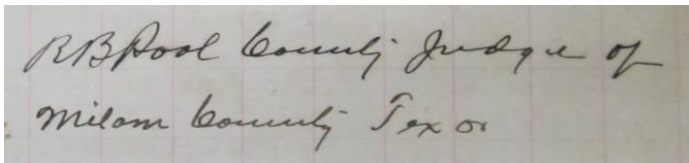 R B Pool County Judge of
Milam County Texas